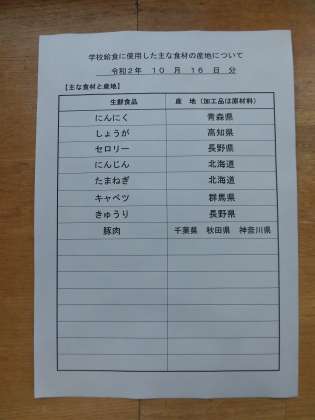 学校給食に使用した主な食材の産地について
令和２年 １０ 月 １６ 日 分
【主な食材と産地】
生鮮食品 産 地（加工品は原材料）
にんにく 青森県
しょうが 高知県
セロリー 長野県
にんじん 北海道
たまねぎ 北海道
キャベツ 群馬県
きゅうり 長野県
豚肉 千葉県 秋田県 神奈川県